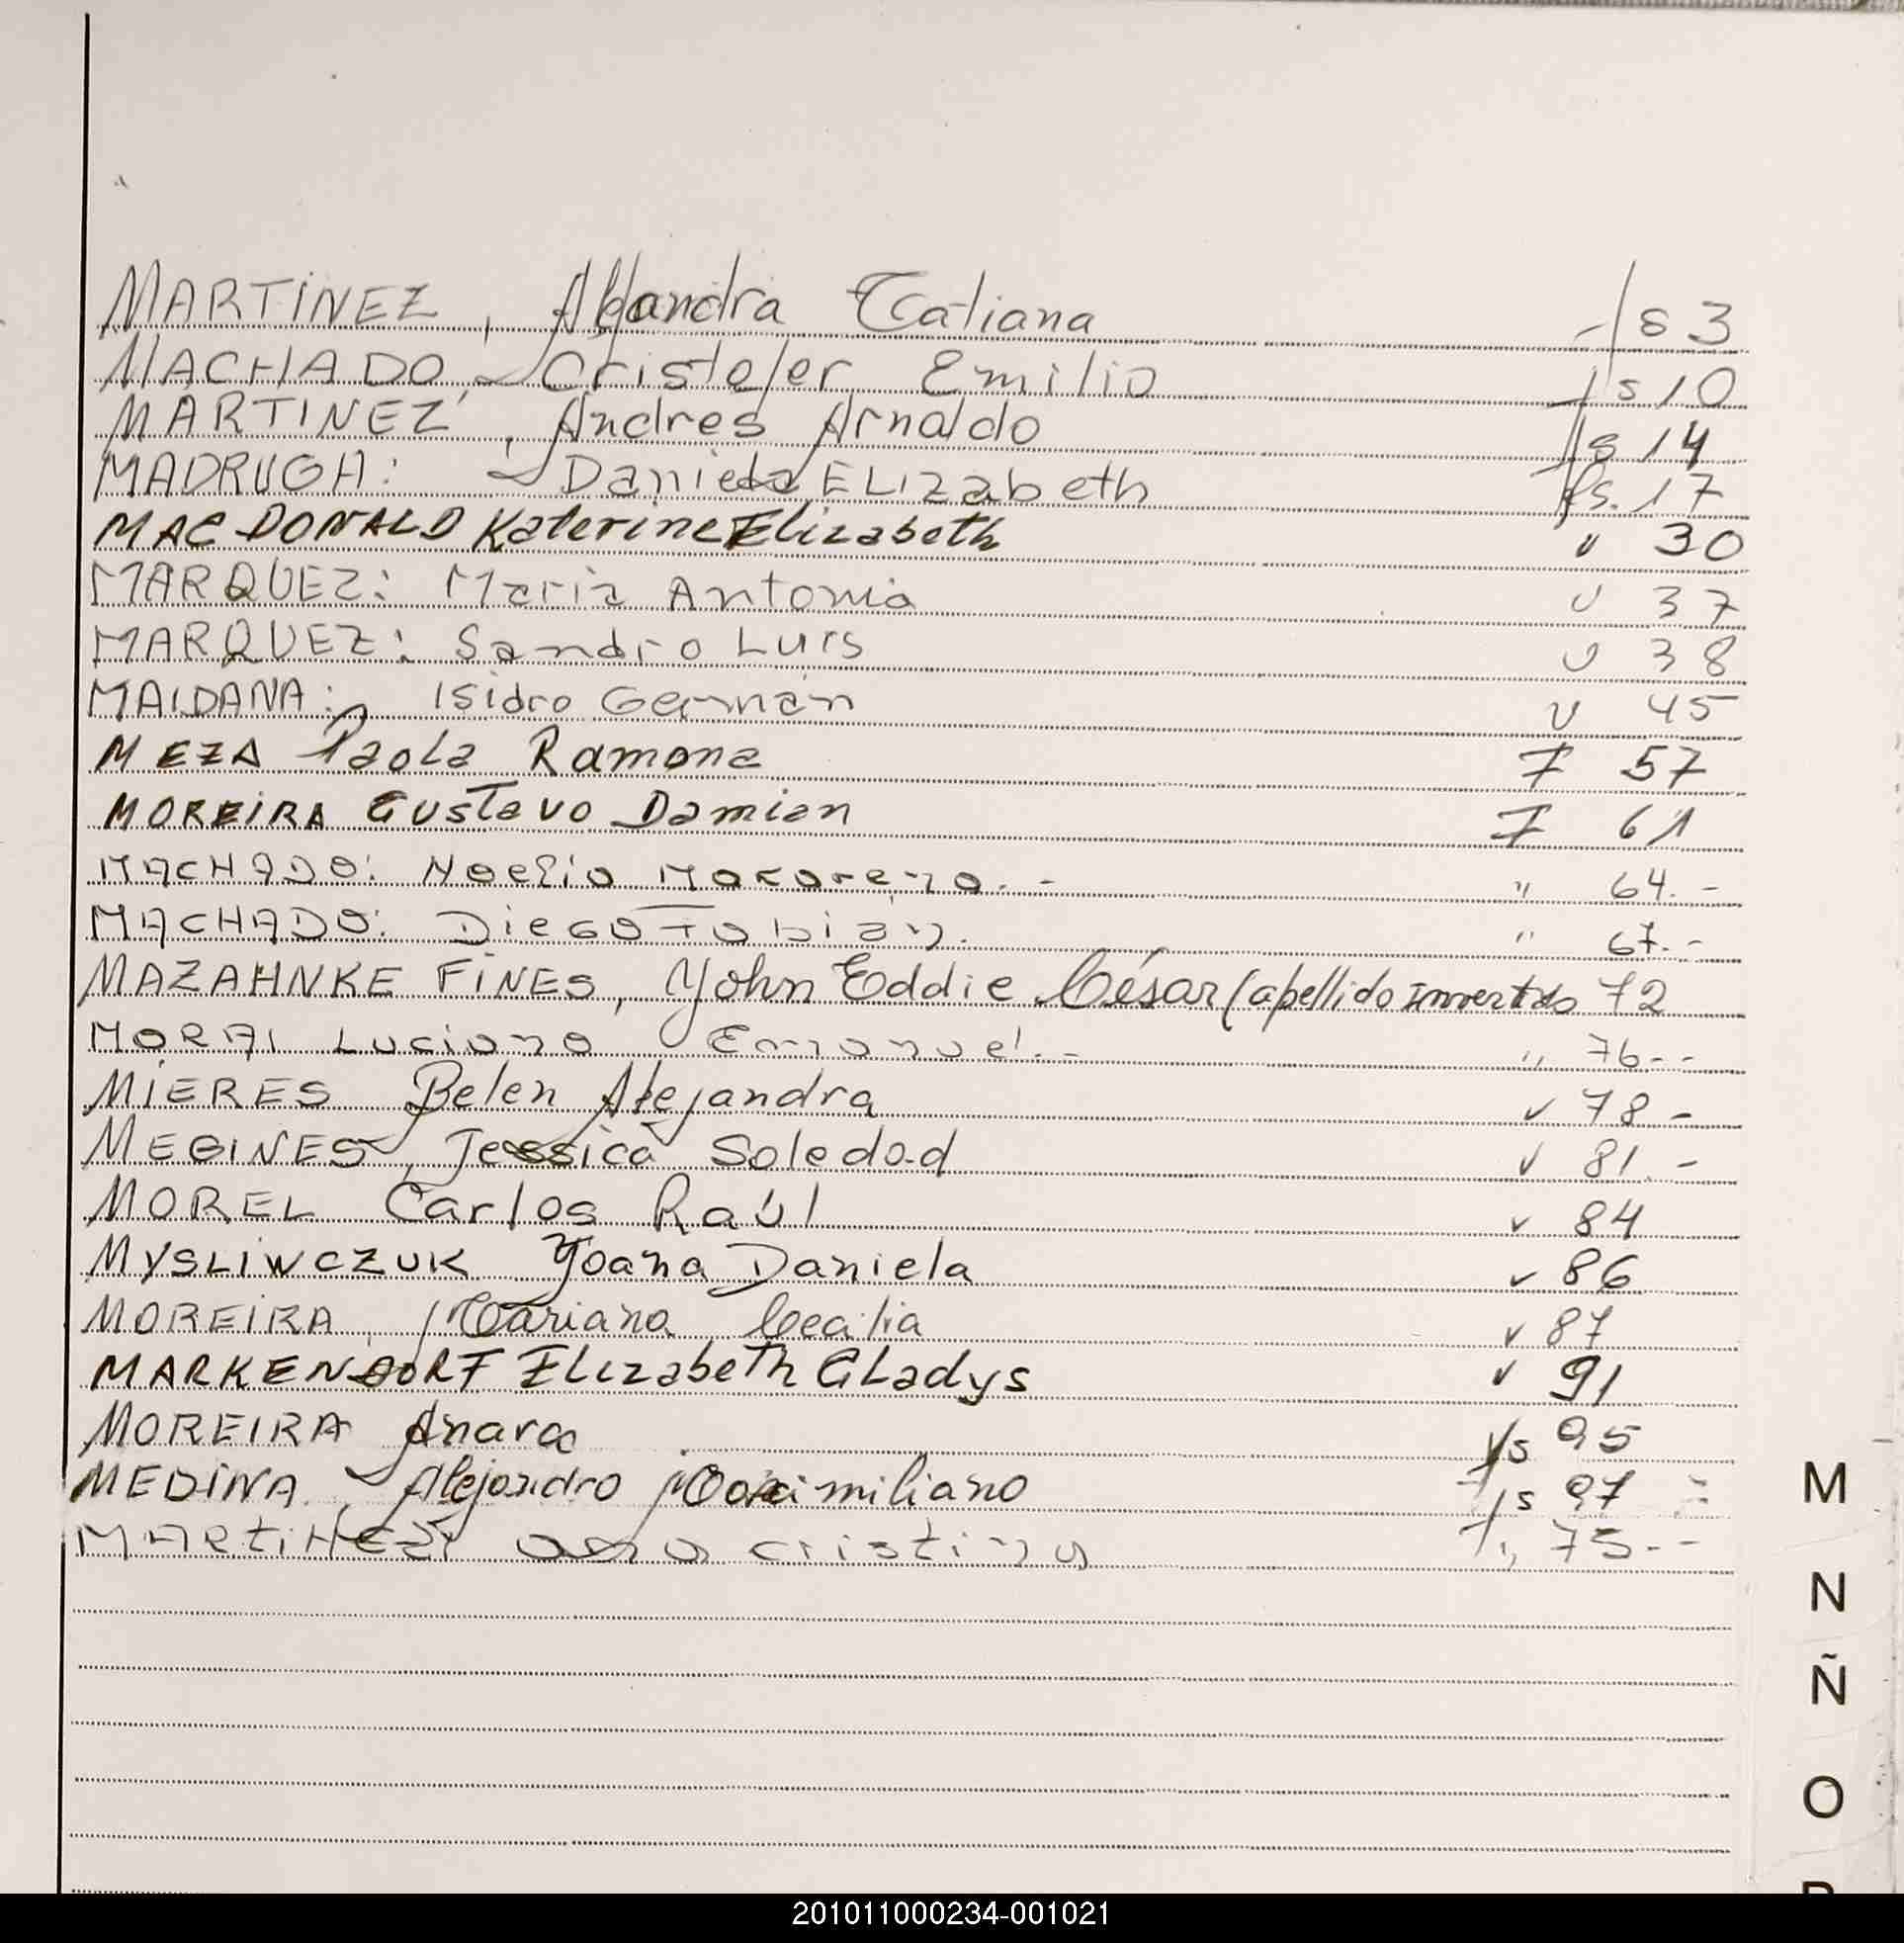 MARTINEZ, Alejandra Tatiana fs 3
MACHADO, Cristofer Emilio fs 10
MARTINEZ, Andres Arnaldo fs 14
MADRUGA: Daniela ELIZabeth fs. 17
MAC DONALD Katerine Elizabeth " 30
MARQUEZ: Maria Antonia " 37
MARQUEZ: Sandro Luis " 38
MAIDANA: Isidro Germán " 45
MEZA Paola Ramona F 57
MOREIRA Gustavo Damian F 61
MACHADO: Noelia Macarena.- " 64.-
MACHADO: Diego Fabián. " 67.-
MAZAHNKE FINES, Yohn Eddie César (apellido Invertido 72
MORAI Luciano Emanuel.- " 76--
MIERES Belen Alejandra " 78-
MEGINES, Jessica Soledad " 81.-
MOREL Carlos Raúl " 84
MYSLIWCZUK Yoana Daniela " 86
MOREIRA, Mariana Cecilia " 87
MARKENDORF Elizabeth Gladys " 91
MOREIRA Anara fs 95
MEDINA, Alejandro Maximiliano fs 97
MARTINEZ ana cristina 75--
M
N
Ñ
O
201011000234-001021